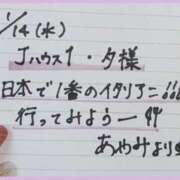 1/14(水)
Jハウス1・夕様
日本で1番のイタリアニ!!
行ってみようー!!
あやみより